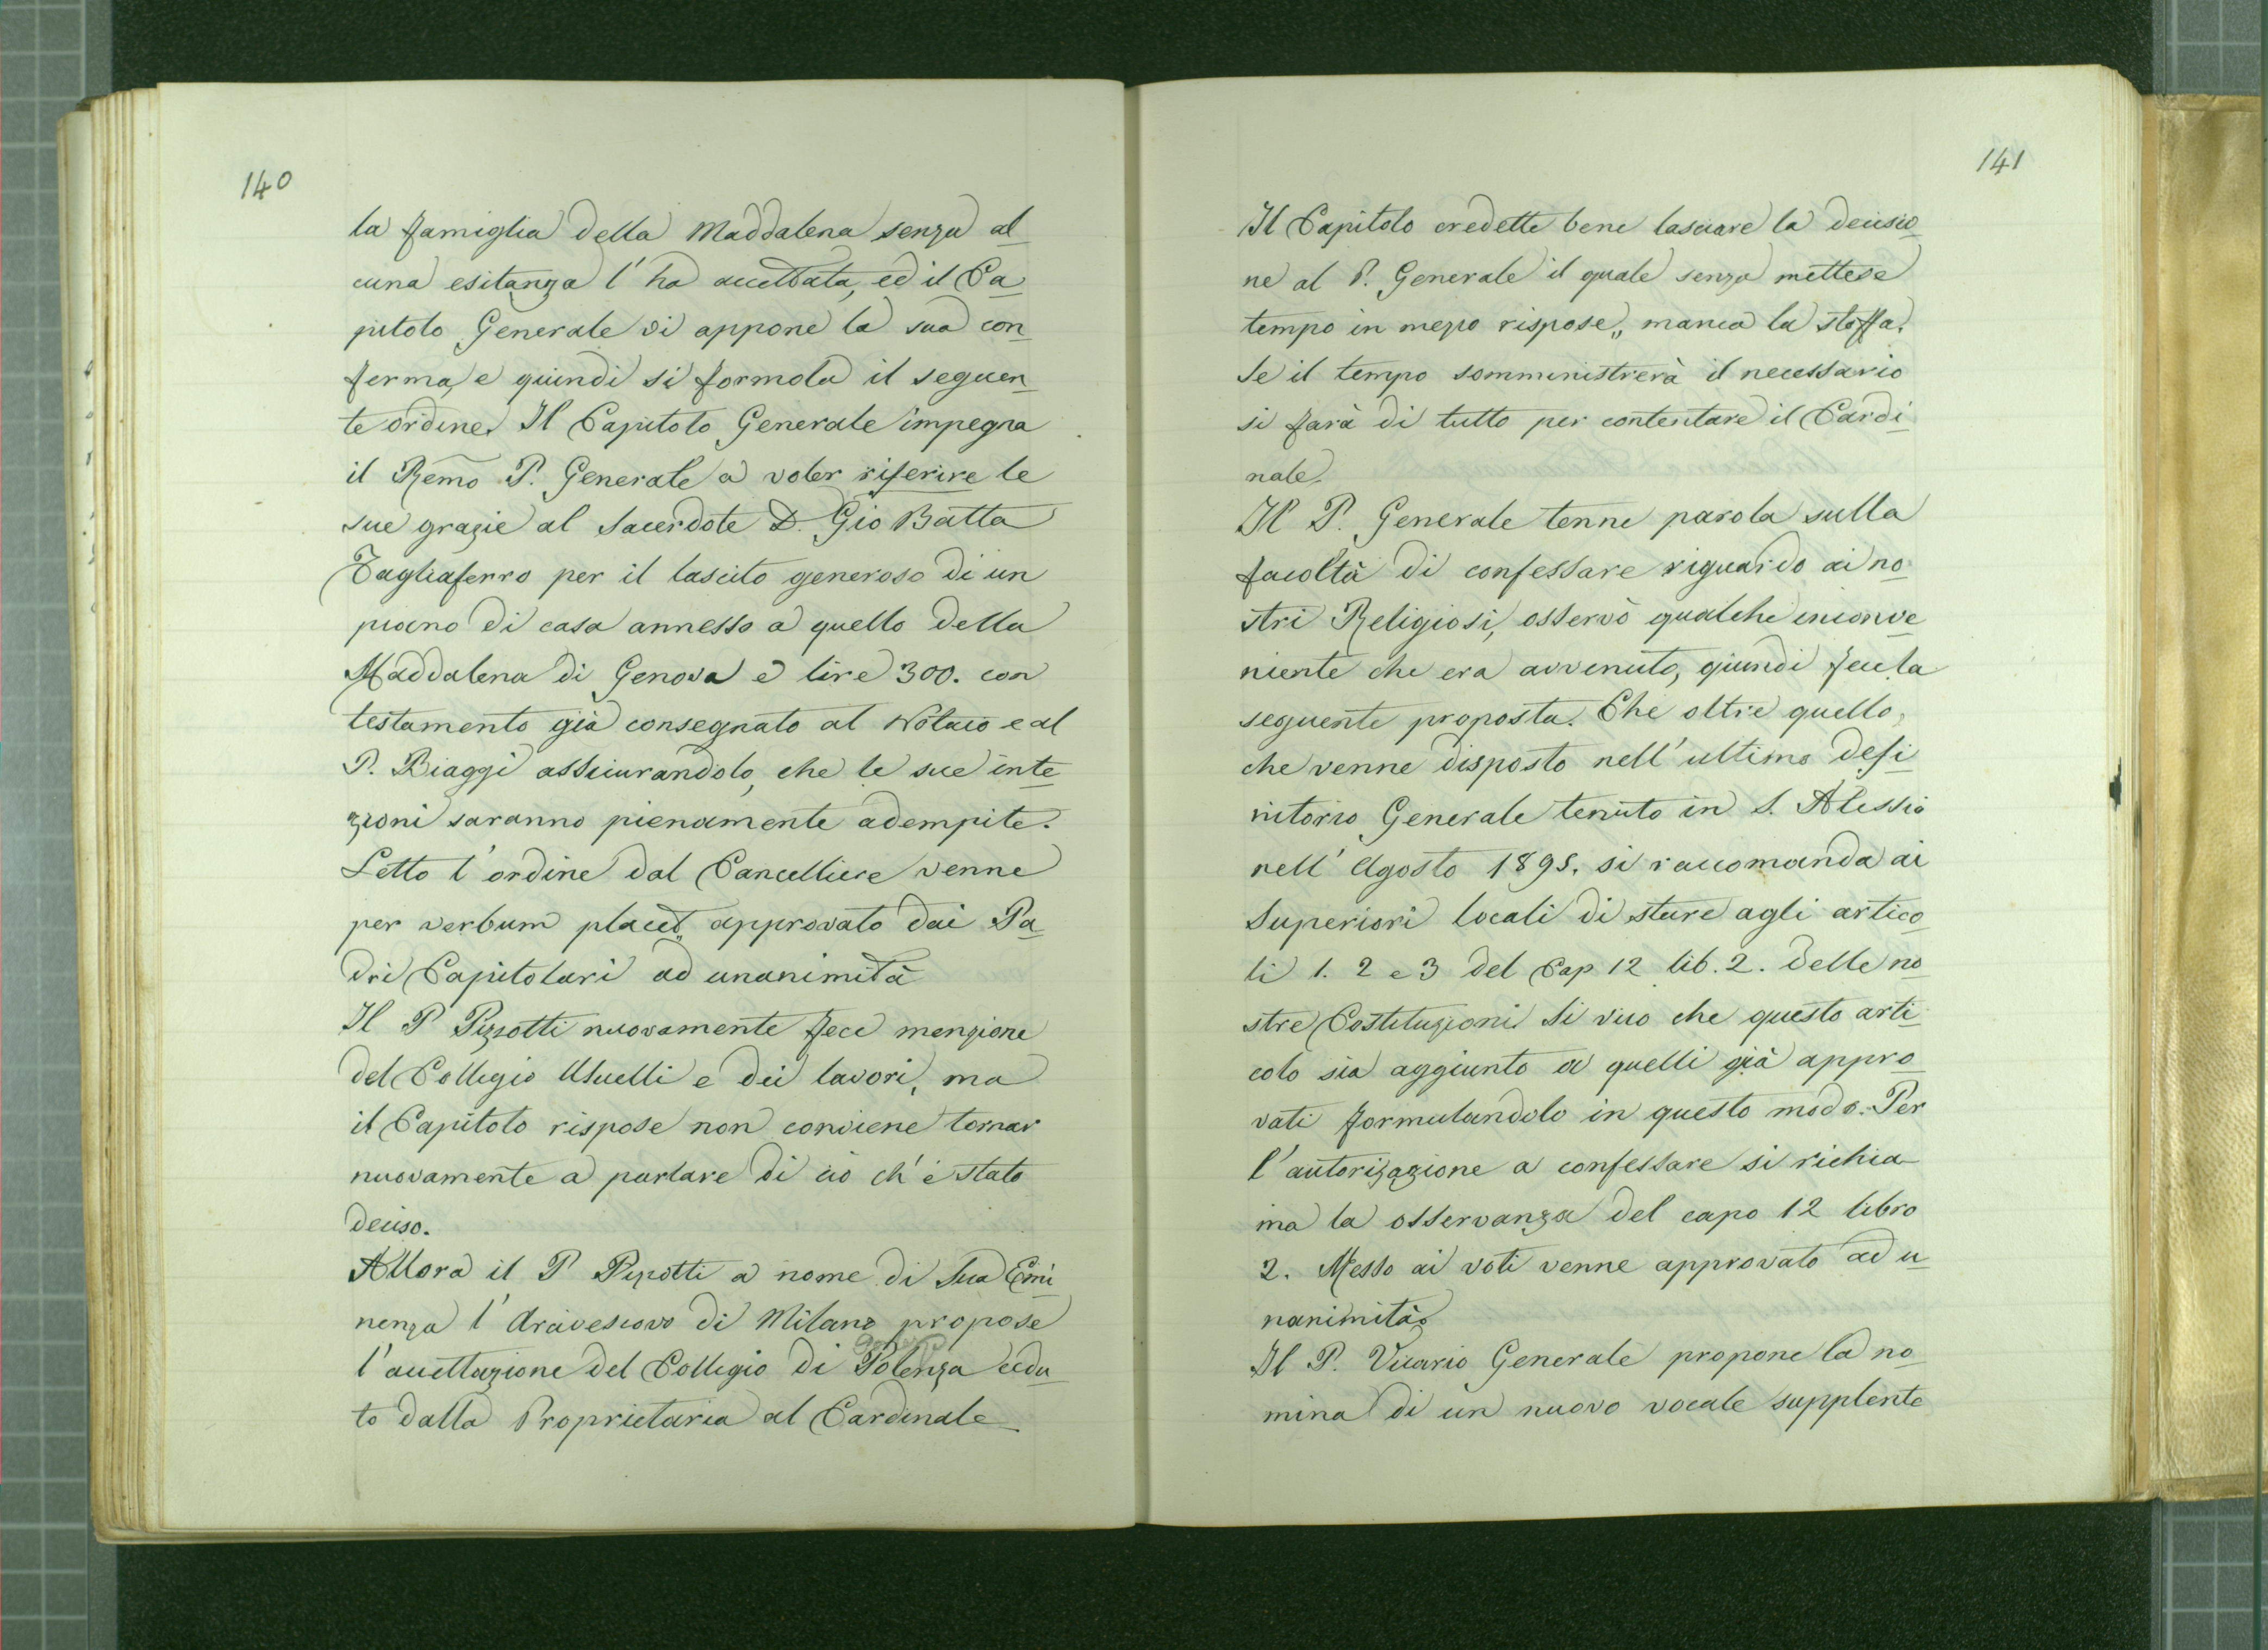 140
la famiglia della Maddalena senza al
cuna esitanza l'ha accettata, ed il Ca
pitolo Generale vi appone la sua con
ferma, e quindi si formola il seguen
te ordine. Il Capitolo Generale impegna
il Remo P. Generale a voler riferire le
sue grazie al Sacerdote D. Gio Batta
Tagliaferro per il lascito generoso di un
piano di casa annesso a quello della
Maddalena di Genova e lire 300. con
testamento già consegnato al Notaio e al
P. Biaggi assicurandolo, che le sue inte
zioni saranno pienamente adempite.
Letto l'ordine dal Cancelliere venne
per verbum placet„ approvato dai Pa
dri Capitolari ad unanimità
Il P Pizzotti nuovamente fece menzione
del Collegio Usuelli e dei lavori, ma
il Capitolo rispose non conviene tornar
nuovamente a parlare di ciò ch'è stato
deciso.
Allora il P Pizzotti a nome di Sua Emi
nenza l'Arcivescovo di Milano propose
l'accettazione del Collegio di Polenza cedu
to dalla Proprietaria al Cardinale
141
Il Capitolo credette bene lasciare la decisio
ne al P. Generale il quale senza mettere
tempo in mezzo rispose„ manca la stoffa.
Se il tempo somministrerà il necessario
si farà di tutto per contentare il Cardi
nale.
Il P. Generale tenne parola sulla
facoltà di confessare riguardo ai no
stri Religiosi, osservò qualche inconve
niente che era avvenuto, quindi fece la
seguente proposta. Che oltre quello,
che venne disposto nell'ultimo defi
nitorio Generale tenuto in S. Alessio
nell'Agosto 1895. si raccomanda ai
Superiori locali di stare agli artico
li 1. 2 e 3 del Cap. 12 lib. 2. delle no
stre Costituzioni Si vuo che questo arti
colo sia aggiunto a quelli già appro
vati formulandolo in questo modo. Per
l'autorizazione a confessare si richia
ma la osservanza del capo 12 libro
2. Messo ai voti venne approvato ad u
nanimità.
Il P. Vicario Generale propone la no
mina di un nuovo vocale supplente